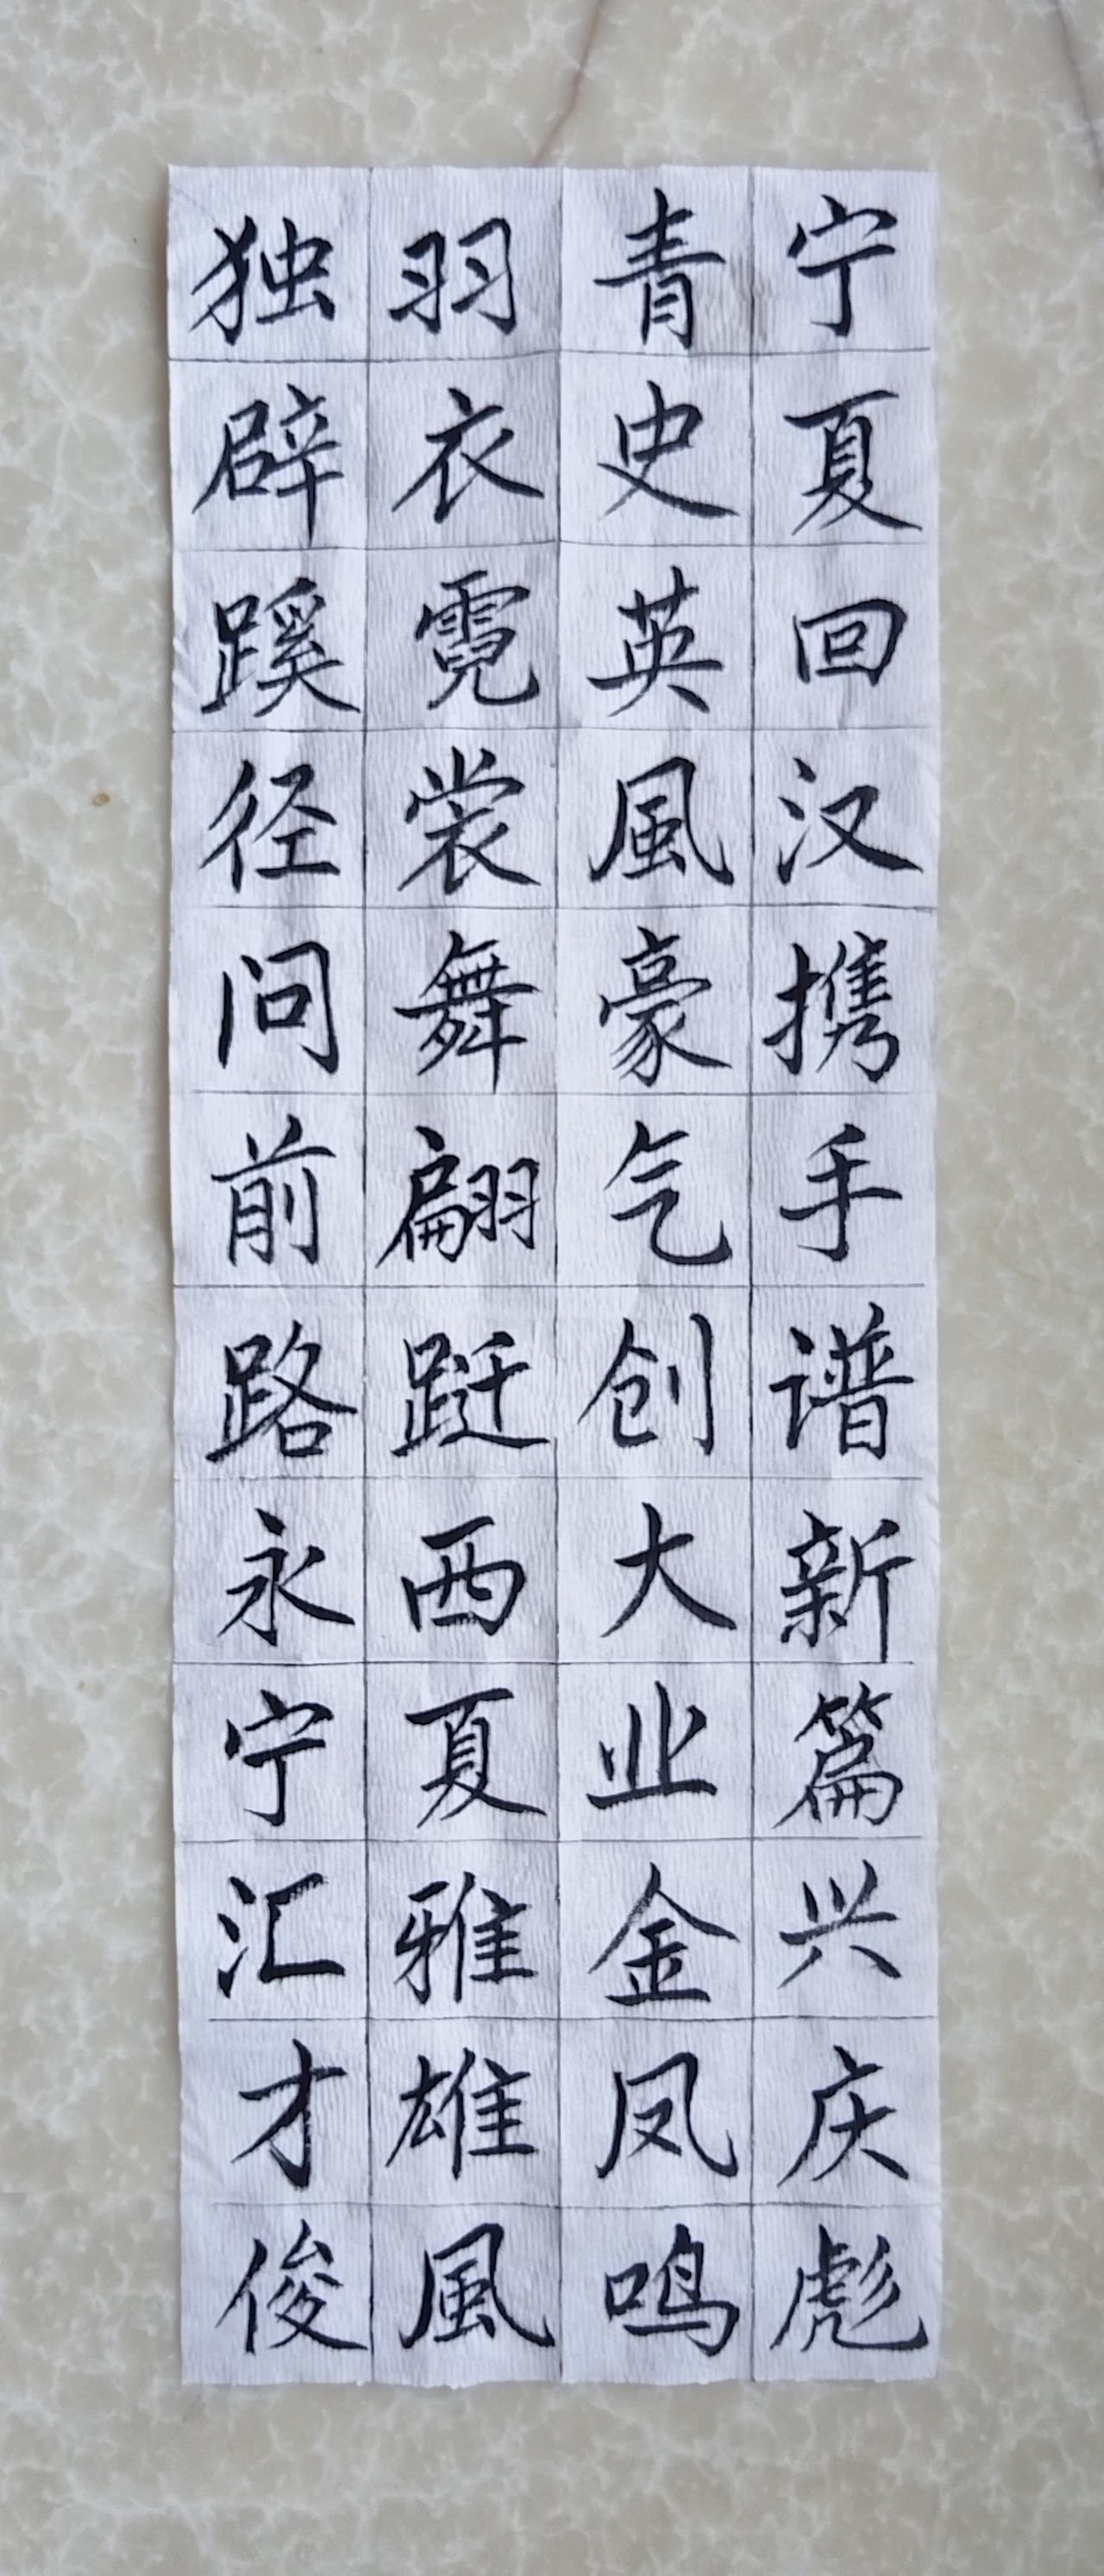 宁夏回汉携手谱新篇兴庆彪
青史英風豪气创大业金凤鸣
羽衣霓裳舞翩跹西夏雅雄風
独辟蹊径问前路永宁汇才俊